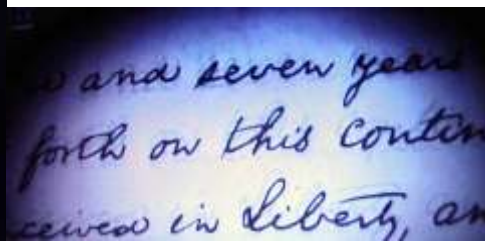 and seven years
forth on this contin
ceived in Liberty, an